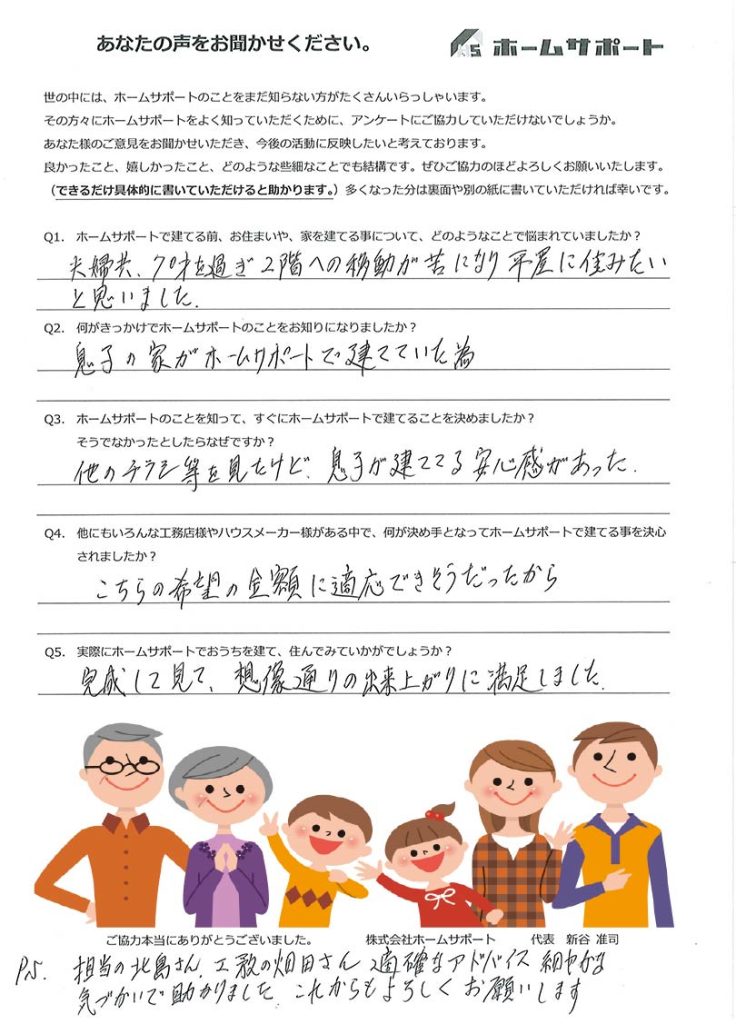 あなたの声をお聞かせください。
ホームサポート
世の中には、ホームサポートのことをまだ知らない方がたくさんいらっしゃいます。
その方々にホームサポートをよく知っていただくために、アンケートにご協力していただけないでしょうか。
あなた様のご意見をお聞かせいただき、今後の活動に反映したいと考えております。
良かったこと、嬉しかったこと、どのような些細なことでも結構です。ぜひご協力のほどよろしくお願いいたします。
（できるだけ具体的に書いていただけると助かります。）多くなった分は裏面や別の紙に書いていただければ幸いです。
Q1. ホームサポートで建てる前、お住まいや、家を建てる事について、どのようなことで悩まれていましたか？
夫婦共、70才を過ぎ2階への移動が苦になり平屋に住みたい
と思いました.
Q2. 何がきっかけでホームサポートのことをお知りになりましたか？
息子の家がホームサポートで建てていた為
Q3. ホームサポートのことを知って、すぐにホームサポートで建てることを決めましたか？
そうでなかったとしたらなぜですか？
他のチラシ等を見たけど、息子が建ててる安心感があった.
Q4. 他にもいろんな工務店様やハウスメーカー様がある中で、何が決め手となってホームサポートで建てる事を決心
されましたか？
こちらの希望の金額に適応できそうだったから
Q5. 実際にホームサポートでおうちを建て、住んでみていかがでしょうか？
完成して見て、想像通りの出来上がりに満足しました.
ご協力本当にありがとうございました。 株式会社ホームサポート 代表 新谷 准司
P.S. 担当の北島さん、工務の畑田さん 適確なアドバイス 細やかな
気づかいで助かりました これからもよろしくお願いします